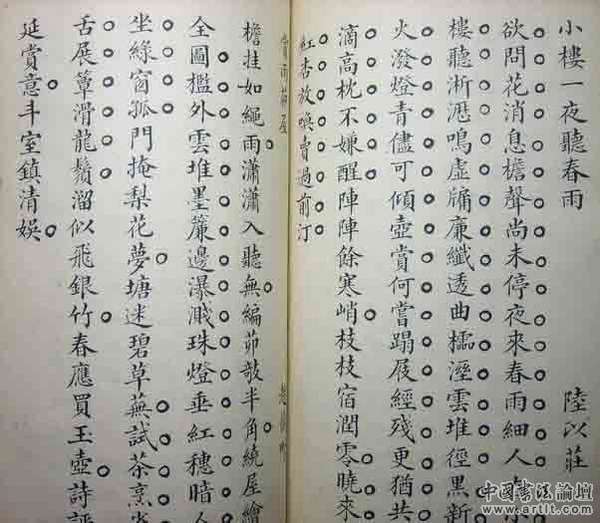 小樓一夜聽春雨 陸以莊
欲問花消息檐聲尚未停夜來春雨細人
樓聽淅瀝鳴虛牖廉纖透曲櫺溼雲堆徑黑新
火潑燈青儘可傾壺賞何嘗蹋屐經殘更猶共
滴高枕不嫌醒陣陣餘寒峭枝枝宿潤零曉來
紅杏放喚賣過前汀
賞雨茆屋
檐挂如繩雨瀟瀟入聽無編茆敧半角繞屋繪
全圖檻外雲堆墨簾邊瀑濺珠燈垂紅穗暗人
坐綠窗孤門掩梨花夢塘迷碧草蕪試茶烹雀
舌展簟滑龍鬚溜似飛銀竹春應買玉壺詩評
延賞意斗室鎮清娛
中國書法論壇
www.artlt.com